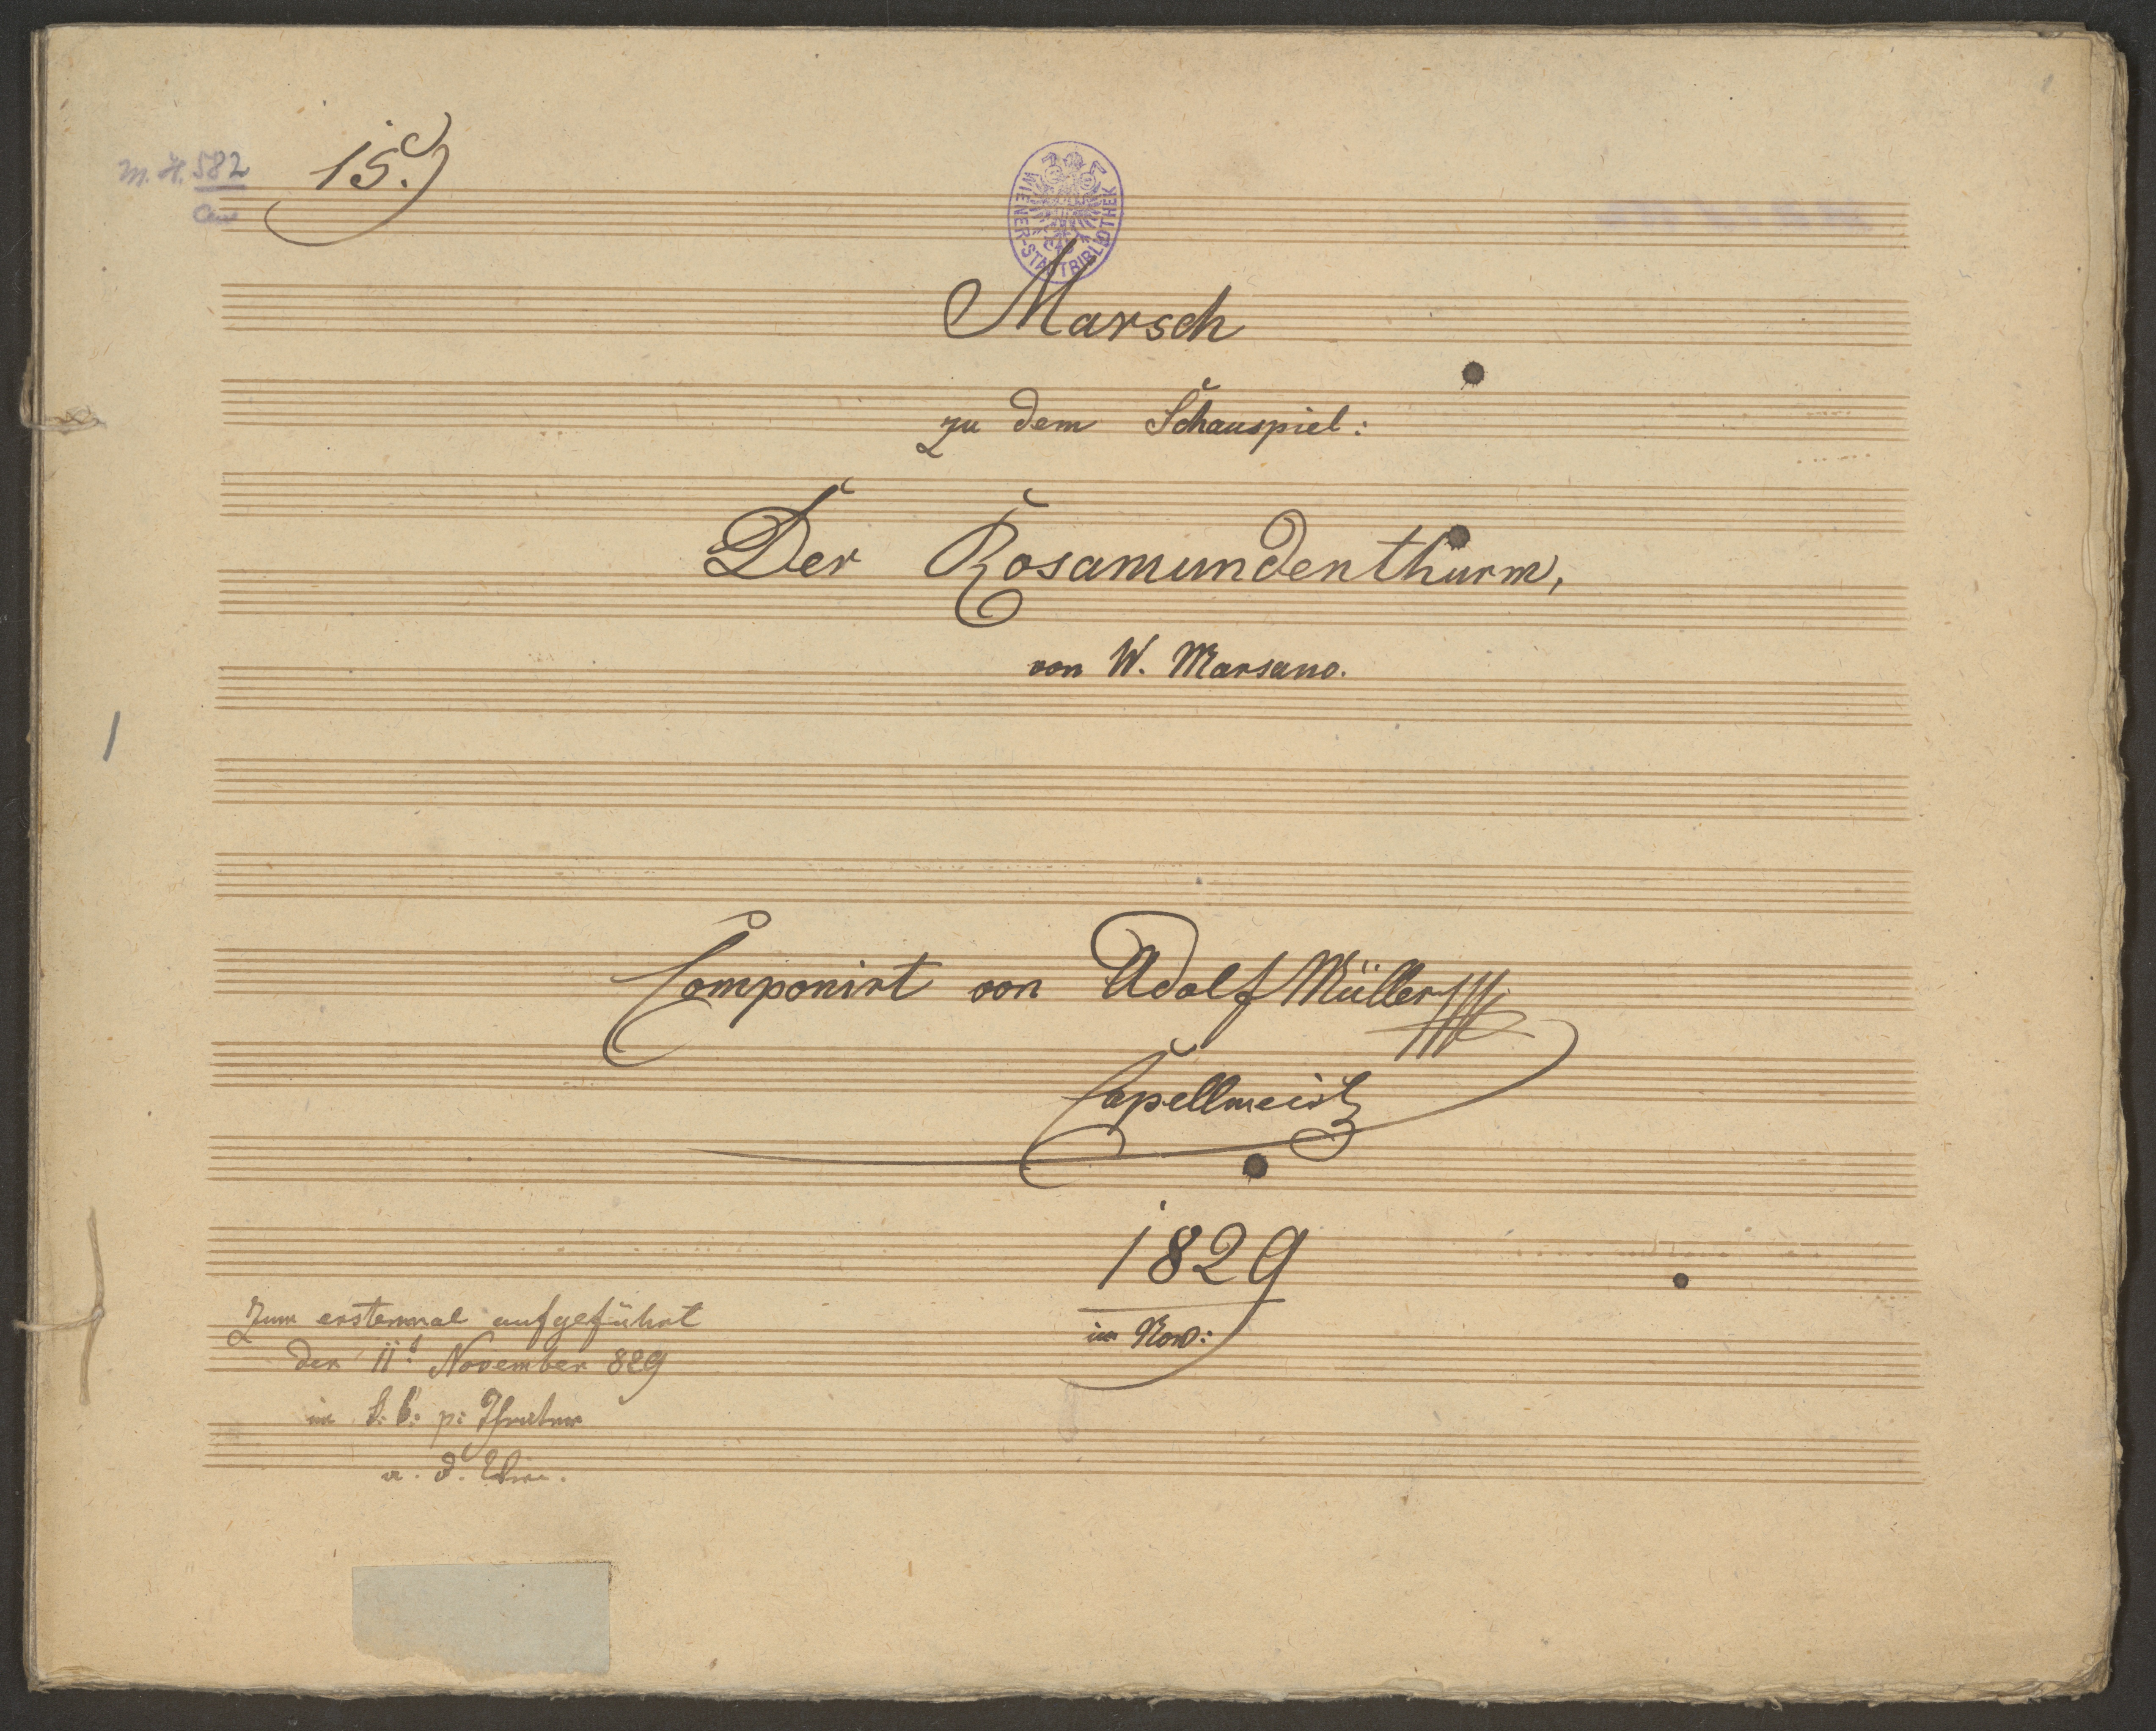 M. H. 582
15.)
WIENER-STADTBIBLIOTHEK
Marsch
zu dem Schauspiel:
Der Rosamundenthurm,
von W. Marsano.
Componirt von Adolf Müller
Capellmeist
1829
im Nov:
Zum erstenmal aufgeführt
den 11t November 829
im k: k: p: Theater
a. d. Wien.
1